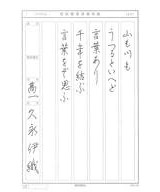 山も川も
うつるといへど
言葉あり
千年を結ぶ
言葉をぞ思ふ
高一
久永伊織